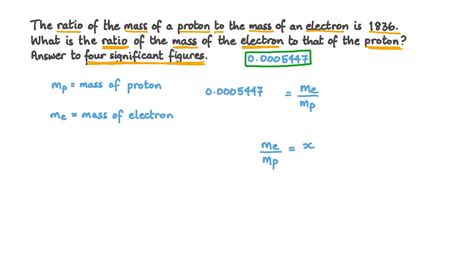 The ratio of the mass of a proton to the mass of an electron is 1836.
What is the ratio of the mass of the electron to that of the proton?
Answer to four significant figures. 0.0005447
mp = mass of proton
0.0005447 = me/mp
me = mass of electron
me/mp = x